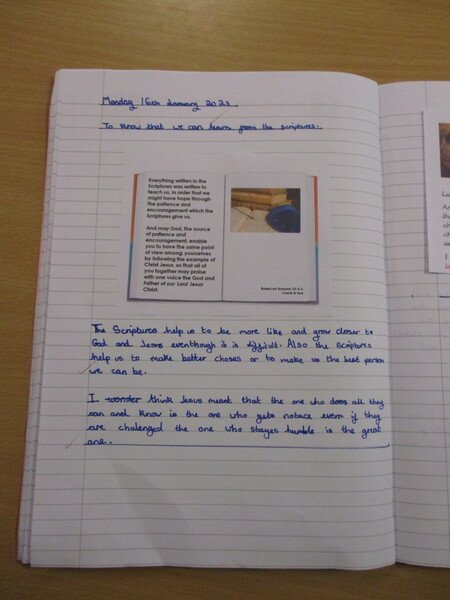 Monday 16th January 2023.
To know that we can learn from the scriptures.
Everything written in the
Scriptures was written to
teach us, in order that we
might have hope through
the patience and
encouragement which the
Scriptures give us.
And may God, the source
of patience and
encouragement, enable
you to have the same point
of view among yourselves
by following the example of
Christ Jesus, so that all of
you together may praise
with one voice the God and
Father of our Lord Jesus
Christ.
Based on Romans 15:4-6
Come & See
The Scriptures help us to be more like and grow closer to
God and Jesus eventhough it is difficult. Also the Scriptures
help us to make better choses or to make us the best person
we can be.
I wonder think Jesus meant that the one who does all they
can and know is the one who gets notace even if they
are chalenged the one who stayes humble is the great
one.